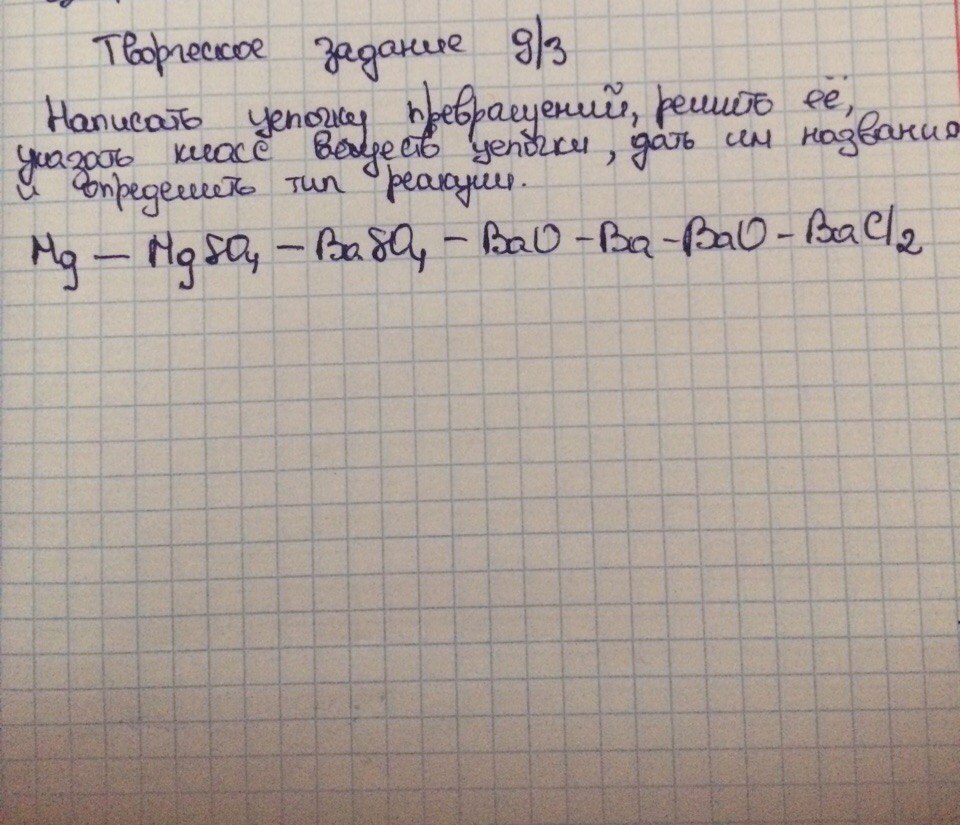 Творческое задание д/з
Написать цепочку превращений, решить её,
указать класс веществ цепочки, дать им названия
и определить тип реакции.
Mg — MgSO₄ — BaSO₄ — BaO — Ba — BaO — BaCl₂